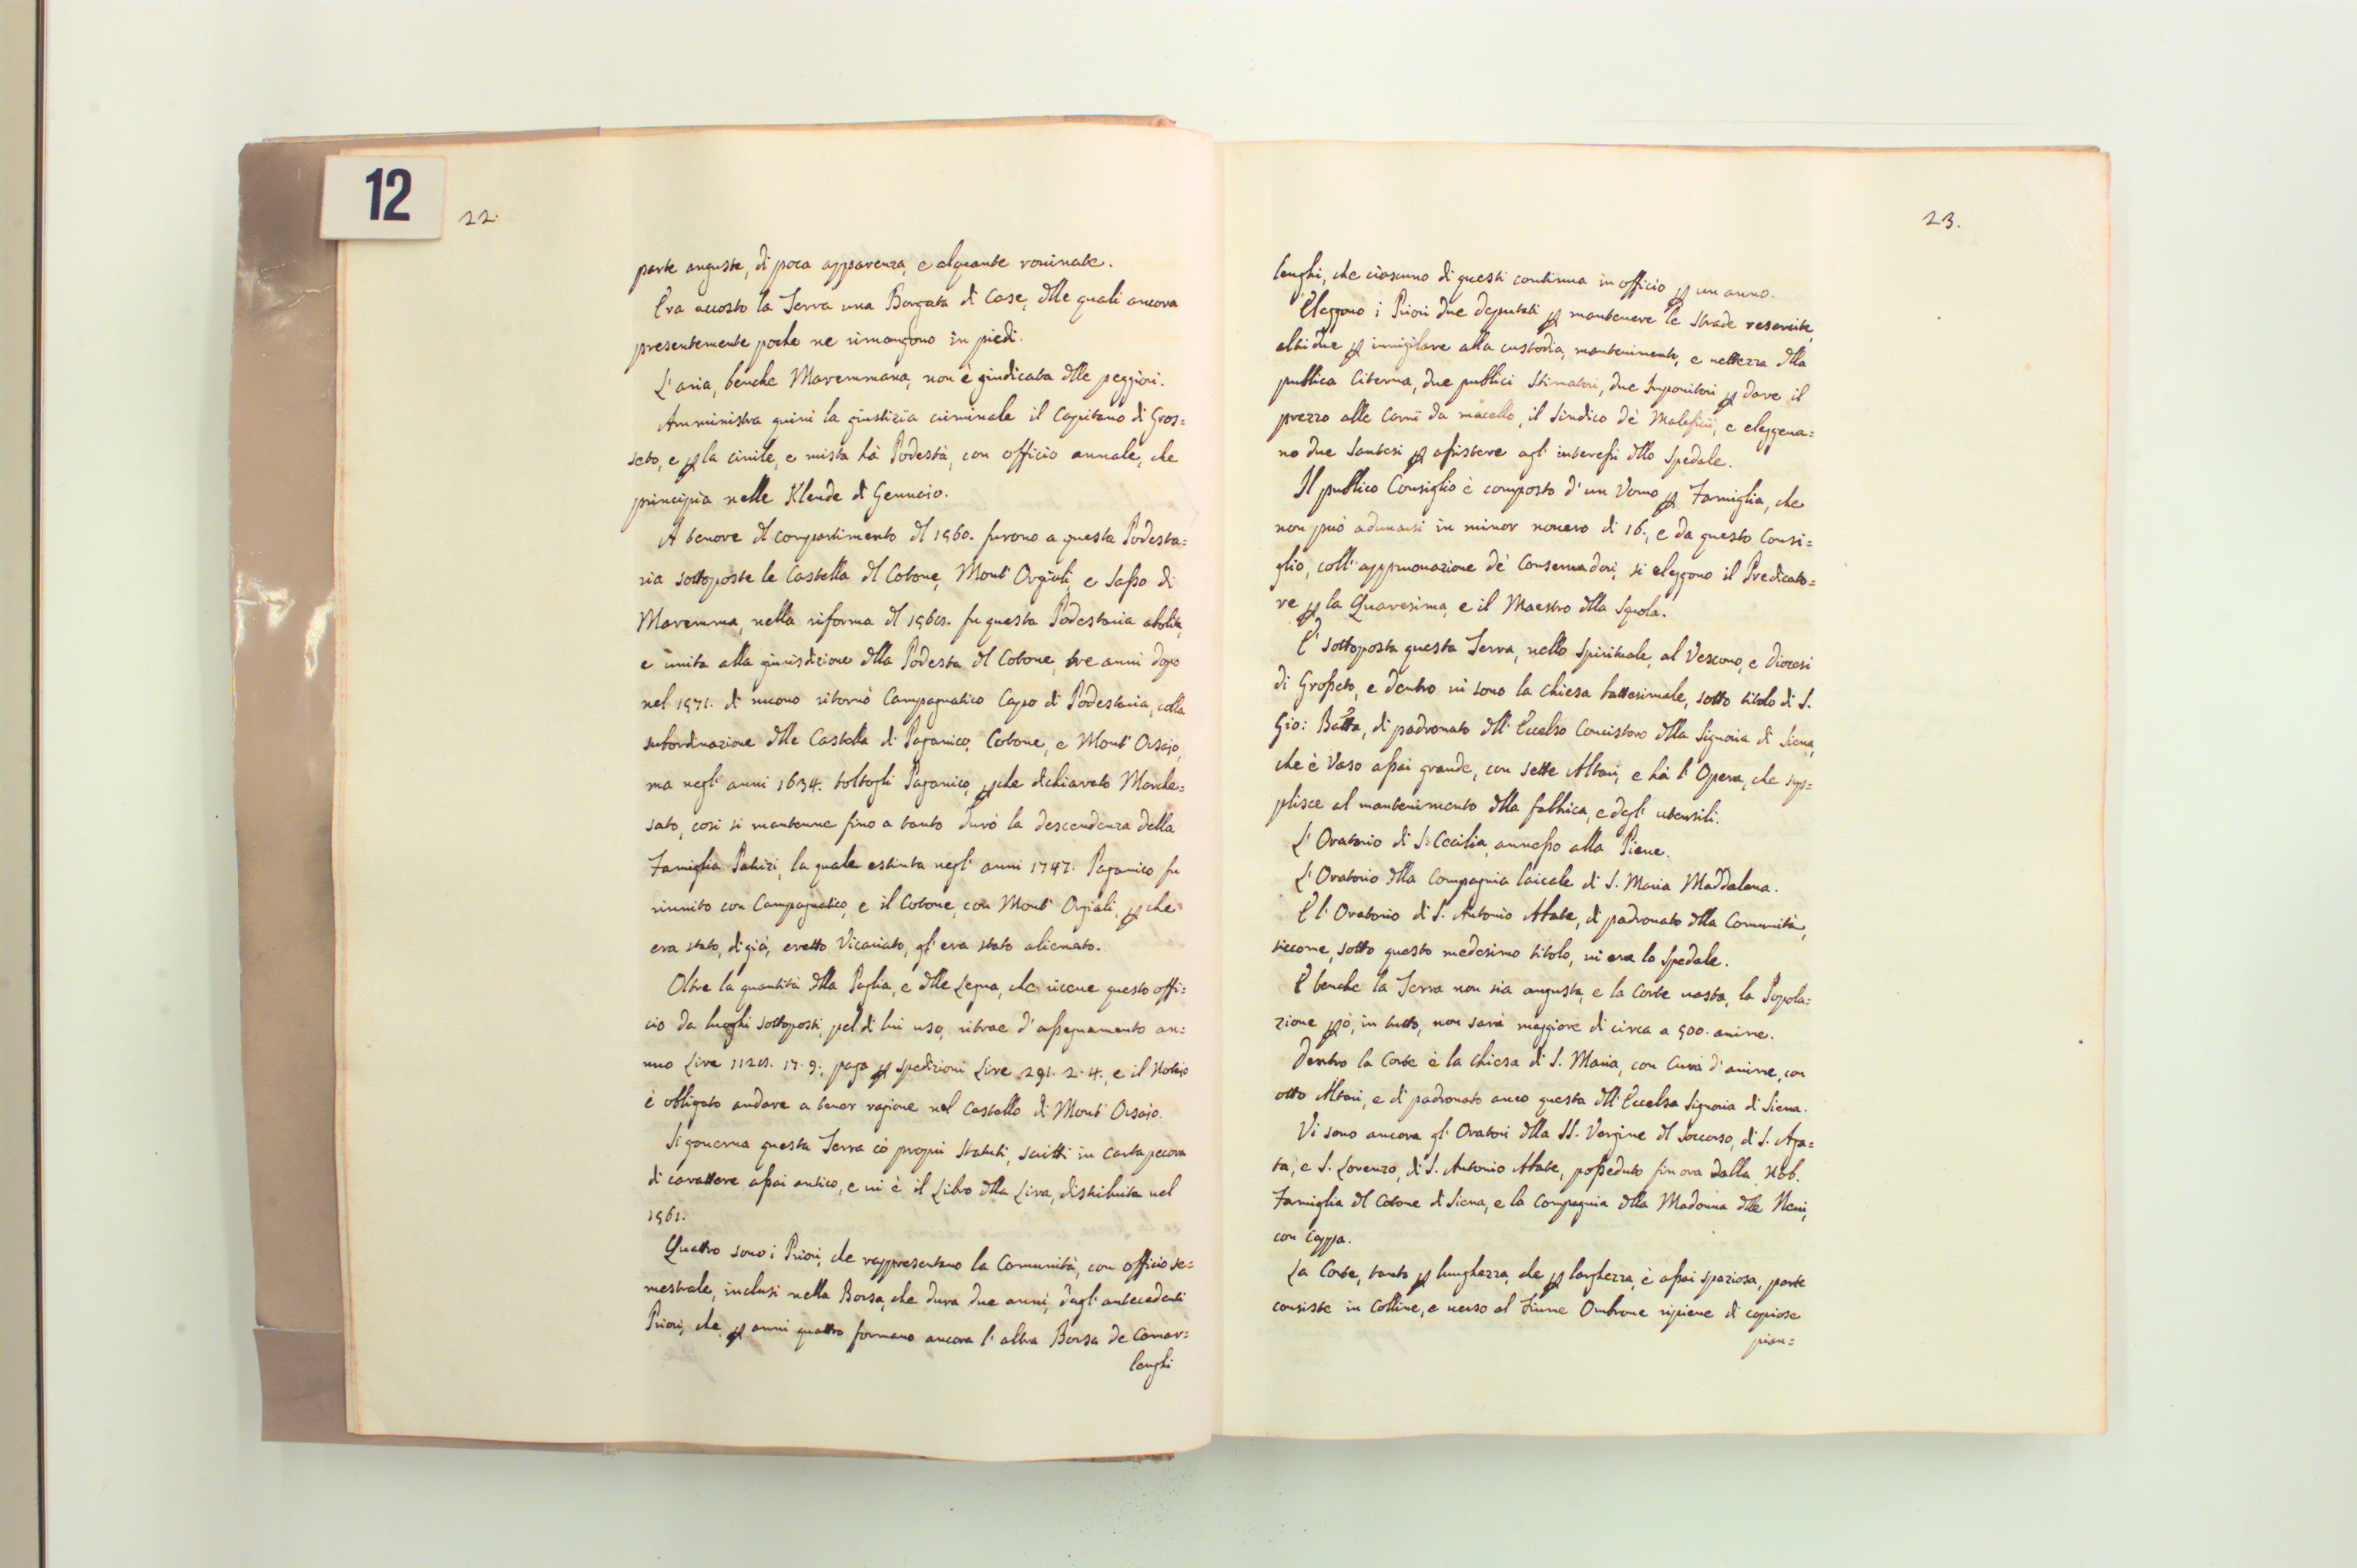 12
22.
parte anguste, di poca apparenza, e alquante rouinate.
Era accosto la Terra una Borgata di Case, dlle quali ancora
presentemente poche ne rimangono in piedi.
L'aria, benche Maremmana, non è giudicata dlle peggiori.
Amministra quiui la giustizia criminale il Capitano di Gros=
seto, e p la ciuile, e mista hà Podestà, con officio annale, che
principia nelle Klende di Gennaio.
A tenore dl compartimento dl 1560. furono a questa Podesta=
ria sottoposte le Castella dl Cotone, Mont'Orgiali, e Sasso di
Maremma, nella riforma dl 1568. fu questa Podestaria abolita,
e unita alla giurisdicione dlla Podestà dl Cotone, tre anni dopo
nel 1571. di nuouo ritornò Campagnatico Capo di Podestaria, colla
subordinazione dlle Castella di Paganico, Cotone, e Mont'Orsaio,
ma negl'anni 1634. toltogli Paganico, pche dichiarato Marche=
sato, cosi si mantenne fino a tanto durò la descendenza della
Famiglia Patrizi, la quale estinta negl'anni 1747. Paganico fu
riunito con Campagnatico, e il Cotone, con Mont'Orgiali, pche
era stato, di già, eretto Vicariato, gl'era stato alienato.
Oltre la quantità dlla Paglia, e dlle Legna, che riceue questo offi=
cio da luoghi sottoposti, pel di lui uso, ritrae d'assegnamento an=
nuo Lire 1128. 17. 9., paga p spedizioni Lire 291. 2. 4., e il Notaio
è obligato andare a tener ragione nel Castello di Mont'Orsaio.
Si gouerna questa Terra cò propri Statuti, scritti in Cartapecora
di carattere assai antico, e ui è il Libro dlla Lira, distribuita nel
1561.
Quattro sono i Priori, che rappresentano la Comunità, con officio se=
mestrale, inclusi nella Borsa, che dura due anni, dagl'antecedenti
Priori, che p anni quattro formano ancora l'altra Borsa de Camar=
lenghi
23.
lenghi, che ciascuno di questi continua in officio p un anno.
Eleggono i Priori due deputati p mantenere le strade resarcite,
altri due p inuigilare alla custodia, mantenimento, e nettezza dlla
publica Citerna, due publici Stimatori, due Imponitori p dare il
prezzo alle Carni da macello, il Sindico de' Malefizii, e eleggeua=
no due Santesi p assistere agl'interessi dllo Spedale.
Il publico Consiglio è composto d'un Vomo p Famiglia, che
non può adunarsi in minor numero di 16., e da questo Consi=
glio, coll'approuazione de' Conseruadori, si eleggono il Predicato=
re p la Quaresima, e il Maestro dlla Squola.
E' sottoposta questa Terra, nello Spirituale, al Vescouo, e Diocesi
di Grosseto, e dentro ui sono la Chiesa battesimale, sotto titolo di S.
Gio: Batta, di padronato dll'Eccelso Concistoro dlla Signoria di Siena,
che è Vaso assai grande, con sette Altari, e hà l'Opera, che sup=
plisce al mantenimento dlla fabbrica, e degl'utensili.
L'Oratorio di S. Cecilia, annesso alla Pieue.
L'Oratorio dlla Compagnia laicale di S. Maria Maddalena.
E l'Oratorio di S. Antonio Abate, di padronato dlla Comunità,
siccome, sotto questo medesimo titolo, ui era lo Spedale.
E benche la Terra non sia angusta, e la Corte uasta, la Popola=
zione pò, in tutto, non sarà maggiore di circa a 500. anime.
Dentro la Corte è la Chiesa di S. Maria, con Cura d'anime, con
otto Altari, e di padronato anco questa dll'Eccelsa Signoria di Siena.
Vi sono ancora gl'Oratori dlla SS. Vergine dl Soccorso, di S. Aga=
ta, e S. Lorenzo, di S. Antonio Abate, posseduto fin ora dalla Nob.
Famiglia dl Cotone di Siena, e la Compagnia dlla Madonna dlle Neui,
con Cappa.
La Corte, tanto p lunghezza, che p larghezza, è assai spaziosa, parte
consiste in Colline, e uerso al Fiume Ombrone ripiene di copiose
pian=